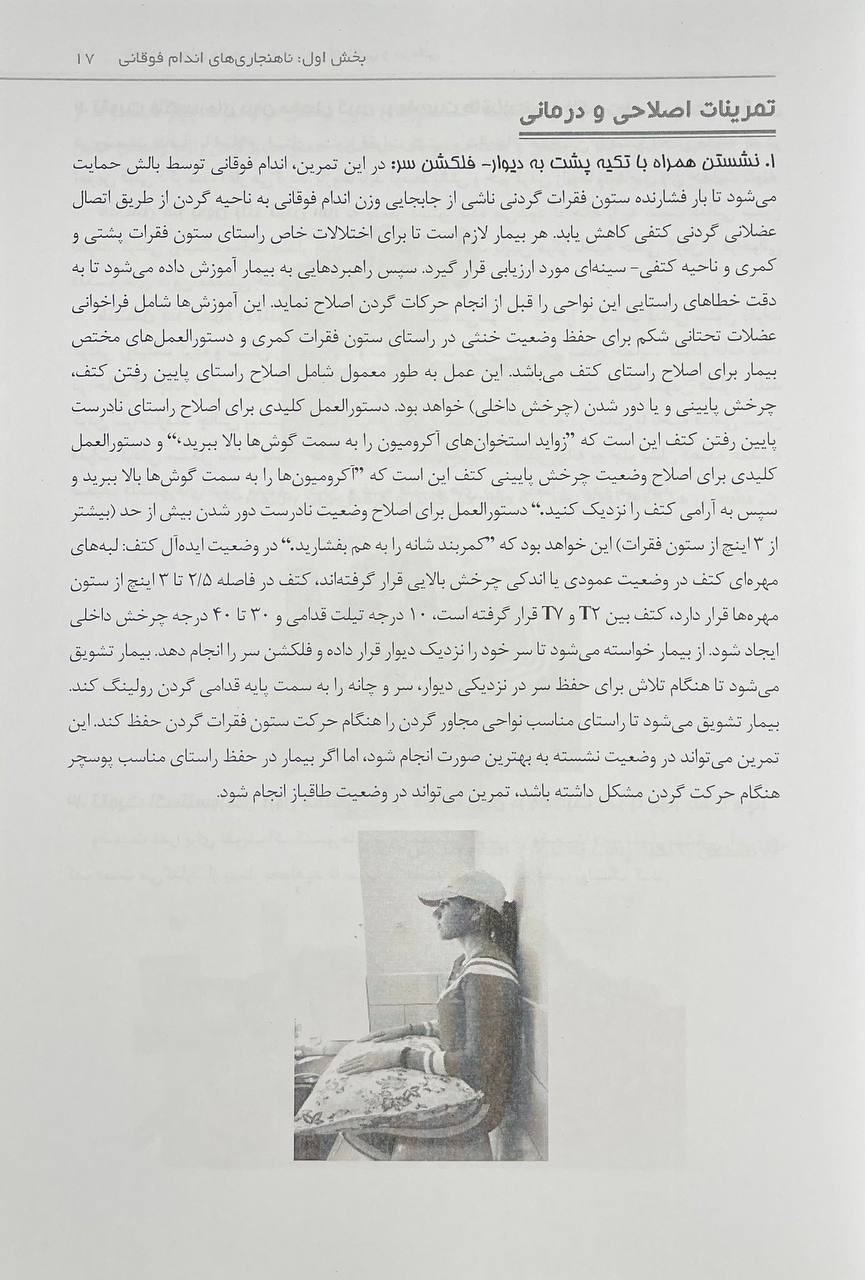 بخش اول: ناهنجاری‌های اندام فوقانی ۱۷
تمرینات اصلاحی و درمانی
۱. نشستن همراه با تکیه پشت به دیوار- فلکشن سر: در این تمرین، اندام فوقانی توسط بالش حمایت
می‌شود تا بار فشارنده ستون فقرات گردنی ناشی از جابجایی وزن اندام فوقانی به ناحیه گردن از طریق اتصال
عضلانی گردنی کتفی کاهش یابد. هر بیمار لازم است تا برای اختلالات خاص راستای ستون فقرات پشتی و
کمری و ناحیه کتفی- سینه‌ای مورد ارزیابی قرار گیرد. سپس راهبردهایی به بیمار آموزش داده می‌شود تا به
دقت خطاهای راستایی این نواحی را قبل از انجام حرکات گردن اصلاح نماید. این آموزش‌ها شامل فراخوانی
عضلات تحتانی شکم برای حفظ وضعیت خنثی در راستای ستون فقرات کمری و دستورالعمل‌های مختص
بیمار برای اصلاح راستای کتف می‌باشد. این عمل به طور معمول شامل اصلاح راستای پایین رفتن کتف،
چرخش پایینی و یا دور شدن (چرخش داخلی) خواهد بود. دستورالعمل کلیدی برای اصلاح راستای نادرست
پایین رفتن کتف این است که ”زواید استخوان‌های آکرومیون را به سمت گوش‌ها بالا ببرید،“ و دستورالعمل
کلیدی برای اصلاح وضعیت چرخش پایینی کتف این است که ”آکرومیون‌ها را به سمت گوش‌ها بالا ببرید و
سپس به آرامی کتف را نزدیک کنید.“ دستورالعمل برای اصلاح وضعیت نادرست دور شدن بیش از حد (بیشتر
از ۳ اینچ از ستون فقرات) این خواهد بود که ”کمربند شانه را به هم بفشارید.“ در وضعیت ایده‌آل کتف: لبه‌های
مهره‌ای کتف در وضعیت عمودی یا اندکی چرخش بالایی قرار گرفته‌اند، کتف در فاصله ۲/۵ تا ۳ اینچ از ستون
مهره‌ها قرار دارد، کتف بین T۲ و T۷ قرار گرفته است، ۱۰ درجه تیلت قدامی و ۳۰ تا ۴۰ درجه چرخش داخلی
ایجاد شود. از بیمار خواسته می‌شود تا سر خود را نزدیک دیوار قرار داده و فلکشن سر را انجام دهد. بیمار تشویق
می‌شود تا هنگام تلاش برای حفظ سر در نزدیکی دیوار، سر و چانه را به سمت پایه قدامی گردن رولینگ کند.
بیمار تشویق می‌شود تا راستای مناسب نواحی مجاور گردن را هنگام حرکت ستون فقرات گردن حفظ کند. این
تمرین می‌تواند در وضعیت نشسته به بهترین صورت انجام شود، اما اگر بیمار در حفظ راستای مناسب پوسچر
هنگام حرکت گردن مشکل داشته باشد، تمرین می‌تواند در وضعیت طاقباز انجام شود.